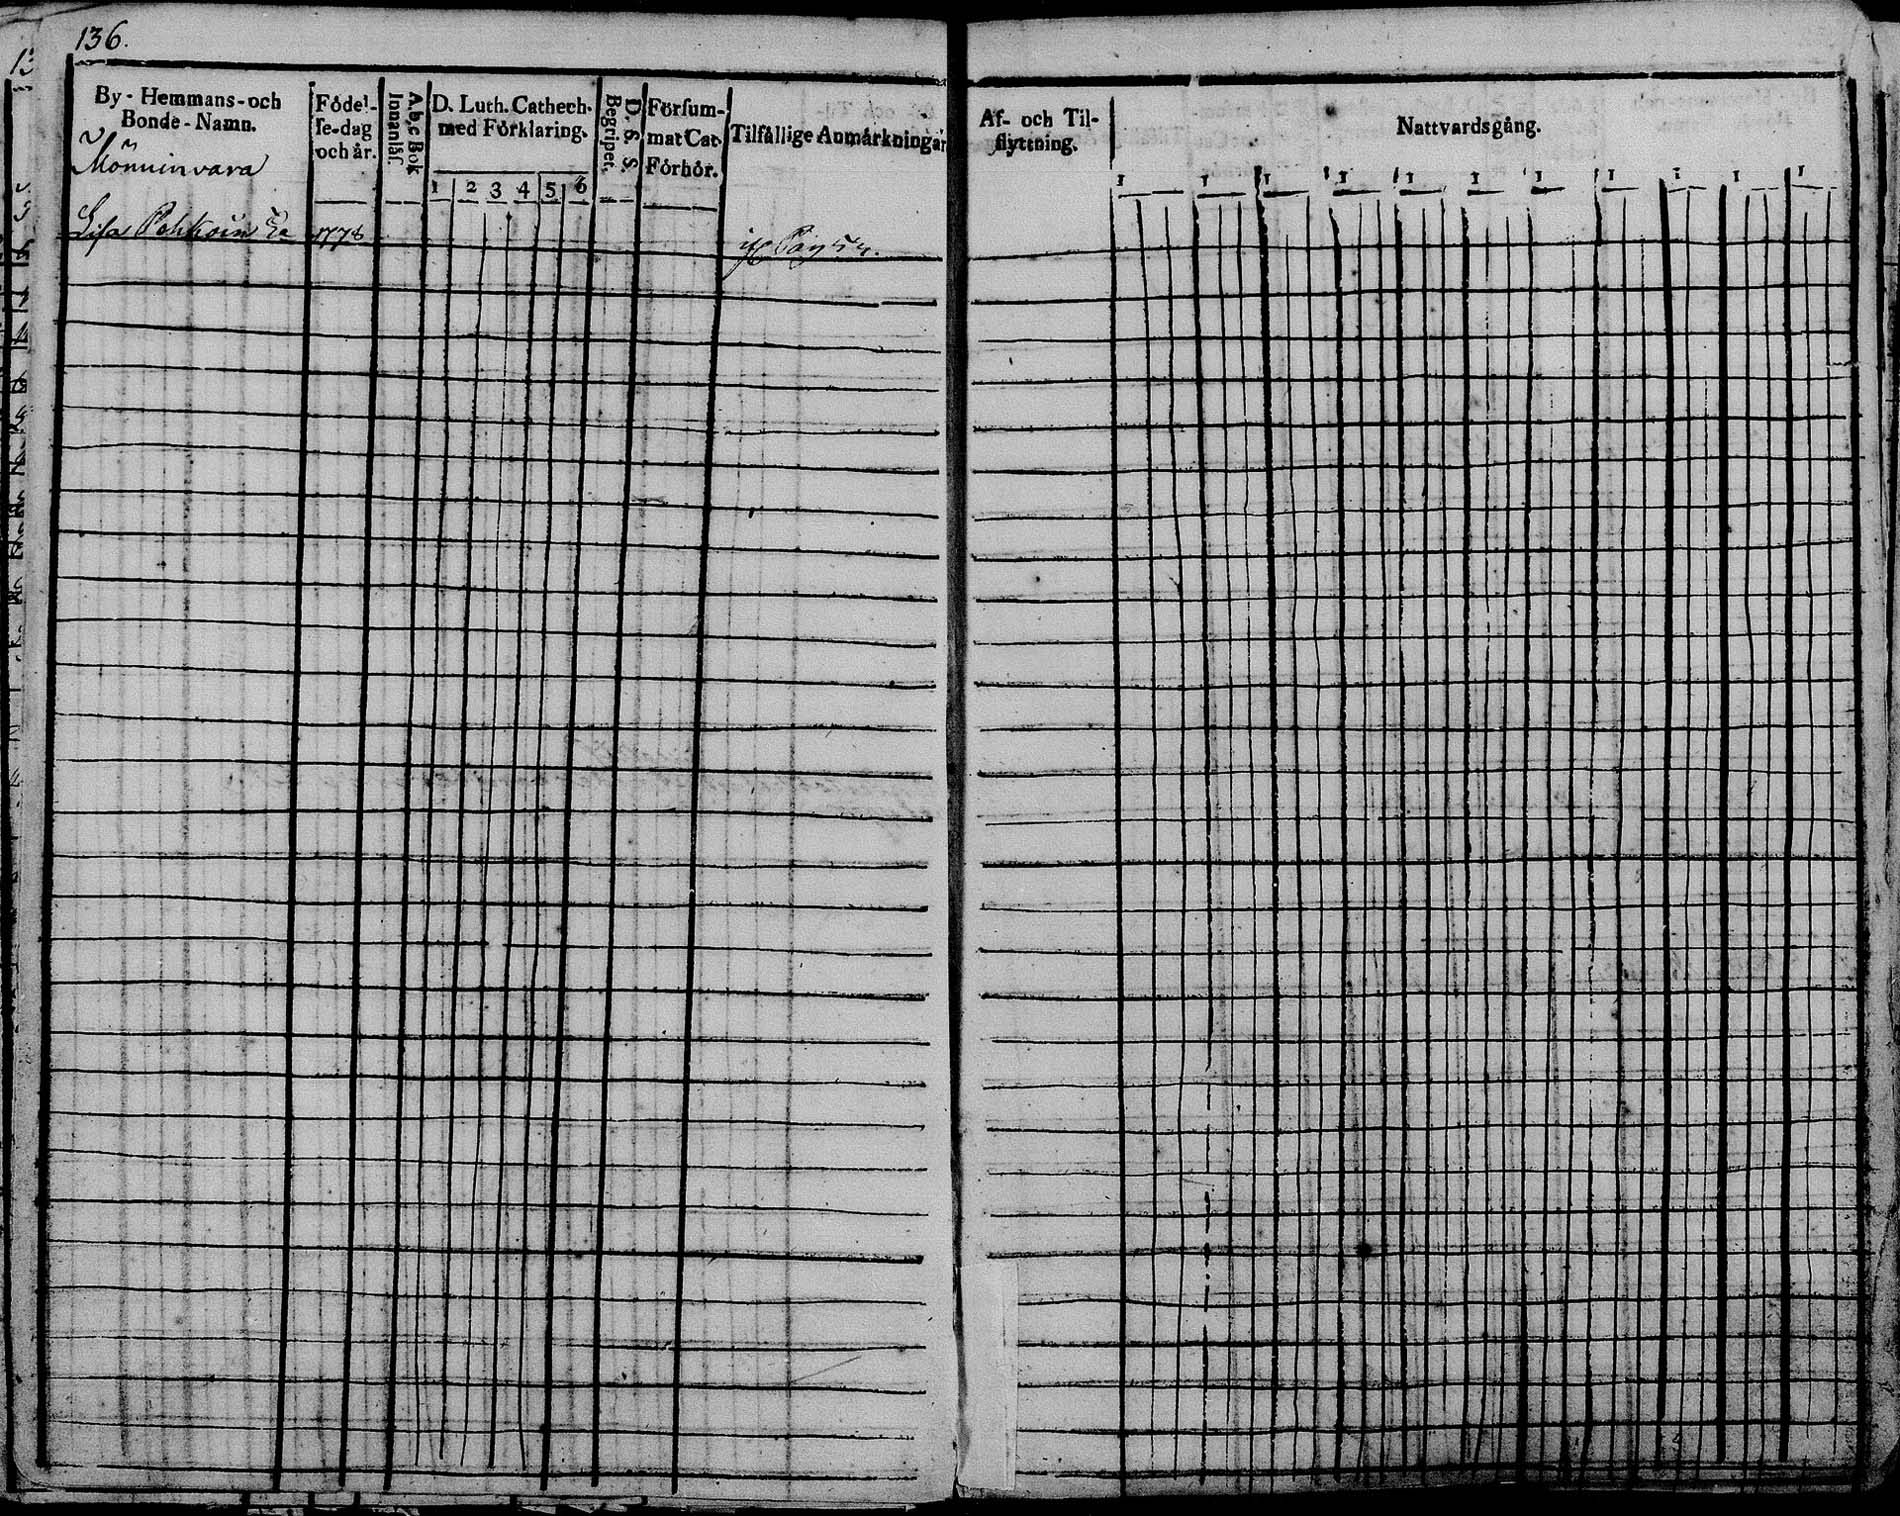 136.
By-Hemmans-och
Bonde-Namn.
Mönninvara
Födel-
se-dag
och år.
A,b,c Bok
Innanläs.
D. Luth. Cathech.
med Förklaring.
1 2 3 4 5 6
D. S. S.
Begripet.
Försum-
mat Cat.
Förhör.
Tilfällige Anmärkningar
Lisa 1778
Pag 54.
Af- och Til-
flyttning.
Nattvardsgång.
1 1 1 1 1 1 1 1 1 1 1